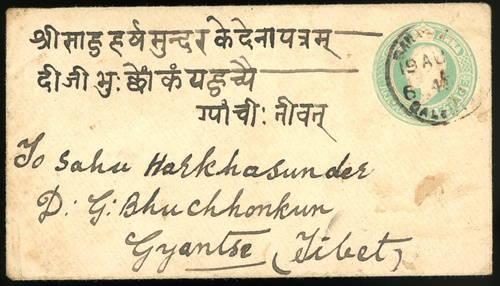 श्री साहु हर्ष सुन्दर के देना पत्रम्
दी जी भु
ग्यांची : नीवन्
To Sahu Harkhasunder
D: G: Bhuchhonkun
Gyantse (Tibet)
19 AU